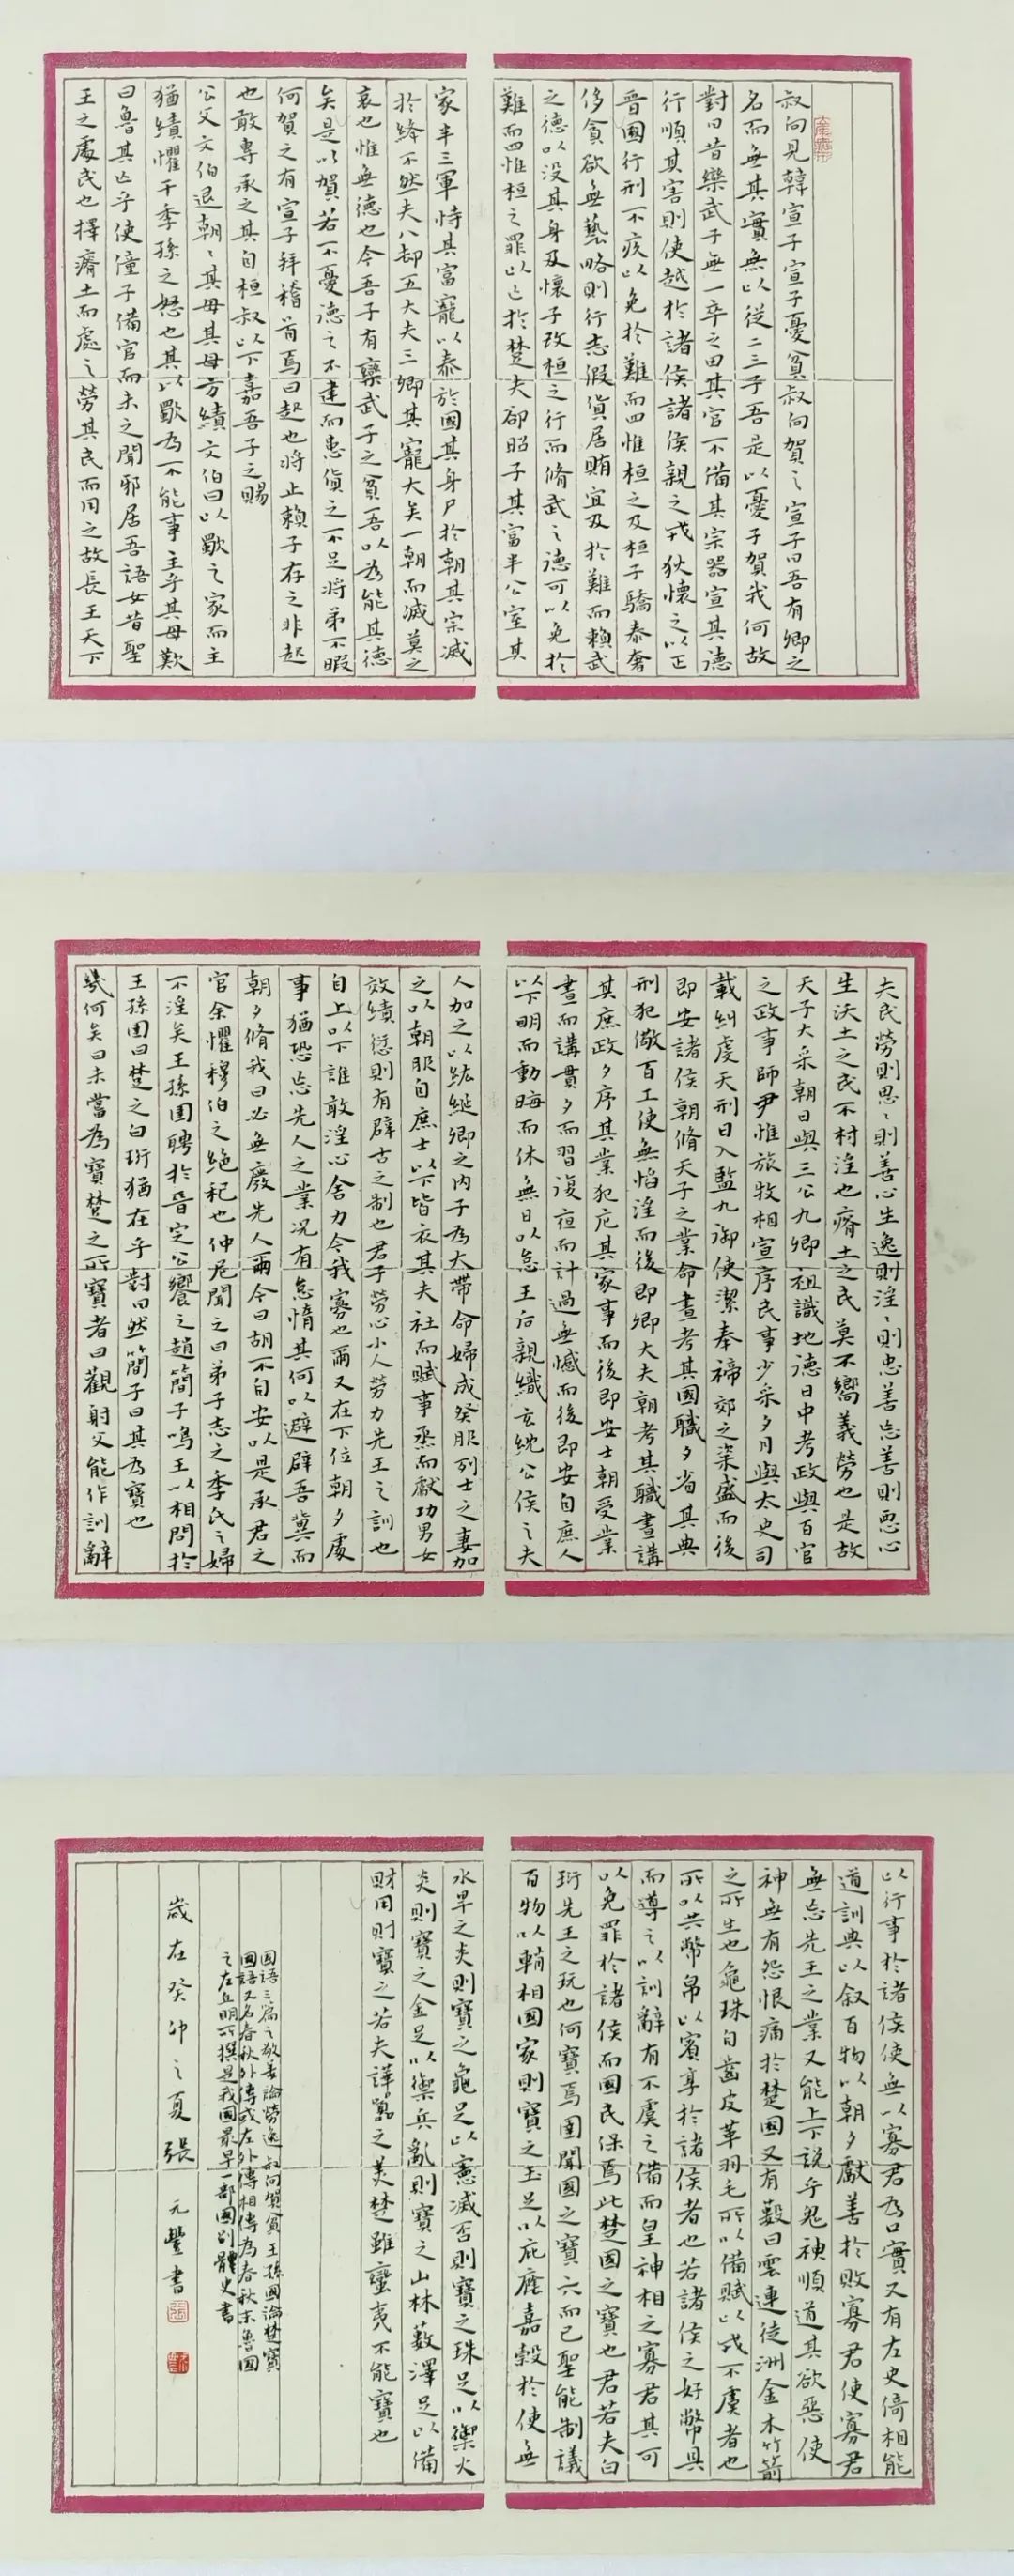 叔向見韓宣子宣子憂貧叔向賀之宣子曰吾有卿之
名而無其實無以從二三子吾是以憂子賀我何故
對曰昔欒武子無一卒之田其官不備其宗器宣其德
行順其害則使越於諸侯諸侯親之戎狄懷之以正
晉國行刑不疚以免於難而四惟桓之及桓子驕泰奢
侈貪欲無藝略則行志假貨居賄宜及於難而賴武
之德以没其身及懷子改桓之行而脩武之德可以免於
難而四惟桓之罪以亡於楚夫郤昭子其富半公室其
家半三軍恃其富寵以泰於國其身尸於朝其宗滅
於絳不然夫八郤五大夫三卿其寵大矣一朝而滅莫之
哀也惟無德也今吾子有欒武子之貧吾以為能其德
矣是以賀若不憂德之不建而患貨之不足將弔不暇
何賀之有宣子拜稽首焉曰起也將亡賴子存之非起
也敢專承之其自桓叔以下嘉吾子之賜
公父文伯退朝、其母其母方績文伯曰以歜之家而主
猶績懼干季孫之怒也其以歜為不能事主乎其母歎
曰魯其亡乎使僮子備官而未之聞邪居吾語女昔聖
王之處民也擇瘠土而處之勞其民而用之故長王天下
夫民勞則思、則善心生逸則淫、則忠善忘善則惡心
生沃土之民不村淫也瘠土之民莫不嚮義勞也是故
天子大采朝日與三公九卿祖識地德日中考政與百官
之政事師尹惟旅牧相宣序民事少采夕月與太史司
載糾虔天刑日入監九御使潔奉禘郊之粢盛而後
即安諸侯朝脩天子之業命晝考其國職夕省其典
刑犯儆百工使無慆淫而後即卿大夫朝考其職晝講
其庶政夕序其業犯庀其家事而後即安士朝受業
晝而講貫夕而習復夜而計過無憾而後即安自庶人
以下明而動晦而休無日以怠王后親織玄紞公侯之夫
人加之以紘綖卿之內子為大帶命婦成癸服列士之妻加
之以朝服自庶士以下皆衣其夫社而賦事烝而獻功男女
效績愆則有辟古之制也君子勞心小人勞力先王之訓也
自上以下誰敢淫心舍力今我寡也爾又在下位朝夕處
事猶恐忘先人之業況有怠惰其何以避辟吾冀而
朝夕脩我曰必無廢先人爾今曰胡不自安以是承君之
官余懼穆伯之絕祀也仲尼聞之曰弟子志之季氏之婦
不淫矣王孫圉聘於晉定公饗之趙簡子鳴玉以相問於
王孫圉曰楚之白珩猶在乎對曰然簡子曰其為寶也
幾何矣曰未嘗為寶楚之所寶者曰觀射父能作訓辭
以行事於諸侯使無以寡君為口實又有左史倚相能
道訓典以叙百物以朝夕獻善於敗寡君使寡君
無忘先王之業又能上下說乎鬼神順道其欲惡使
神無有怨恨痛於楚國又有藪曰雲連徒洲金木竹箭
之所生也龜珠白齒皮革羽毛所以備賦以戎不虞者也
所以共幣帛以賓享於諸侯者也若諸侯之好幣具
而導之以訓辭有不虞之備而皇神相之寡君其可
以免罪於諸侯而國民保焉此楚國之寶也君若夫白
珩先王之玩也何寶焉圉聞國之寶六而已聖能制議
百物以輔相國家則寶之玉足以庇廕嘉穀於使無
水旱之災則寶之龜足以憲臧否則寶之珠足以禦火
災則寶之金足以禦兵亂則寶之山林藪澤足以備
財用則寶之若夫譁嚻之美楚雖蠻夷不能寶也
國語三篇之敬姜論勞逸叔向賀貧王孫圉論楚寶
國語又名春秋外傳或左外傳相傳為春秋末魯國
之左丘明所撰是我國最早一部國別體史書
歲在癸卯之夏張元豐書